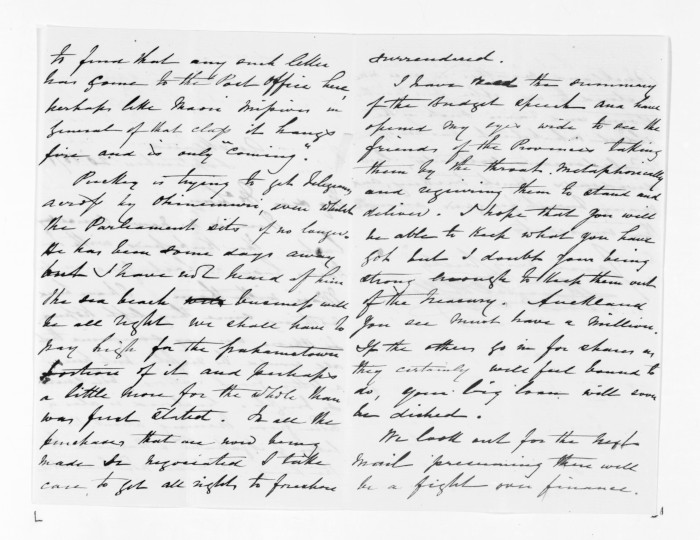 to find that any such letter
has gone to the Post Office here,
perhaps like Maori Missives in
general of that class it hangs
fire and is only "coming".
Puckey is trying to get
across by Ohinemuri, even whilst
the Parliament sits if no longer.
He has been some days away
but I have not heard of him
the sea beach business will
be all right we shall have to
pay high for the
portion of it and perhaps
a little more for the whole than
was first stated. In all the
purchases that are now being
made or negociated I take
care to get all rights to foreshore
surrendered.
I have read the summary
of the Budget speech and have
opened my eyes wide to see the
friends of the Provinces taking
them by the throat metaphorically
and requiring them to stand and
deliver. I hope that you will
be able to keep what you have
got but I doubt your being
strong enough to keep them out
of the Treasury. Auckland
you see must have a million.
If the others go in for shares as
they certainly will feel bound to
do, your big loan will soon
be dished.
We look out for the next
mail presuming there will
be a fight over finance.